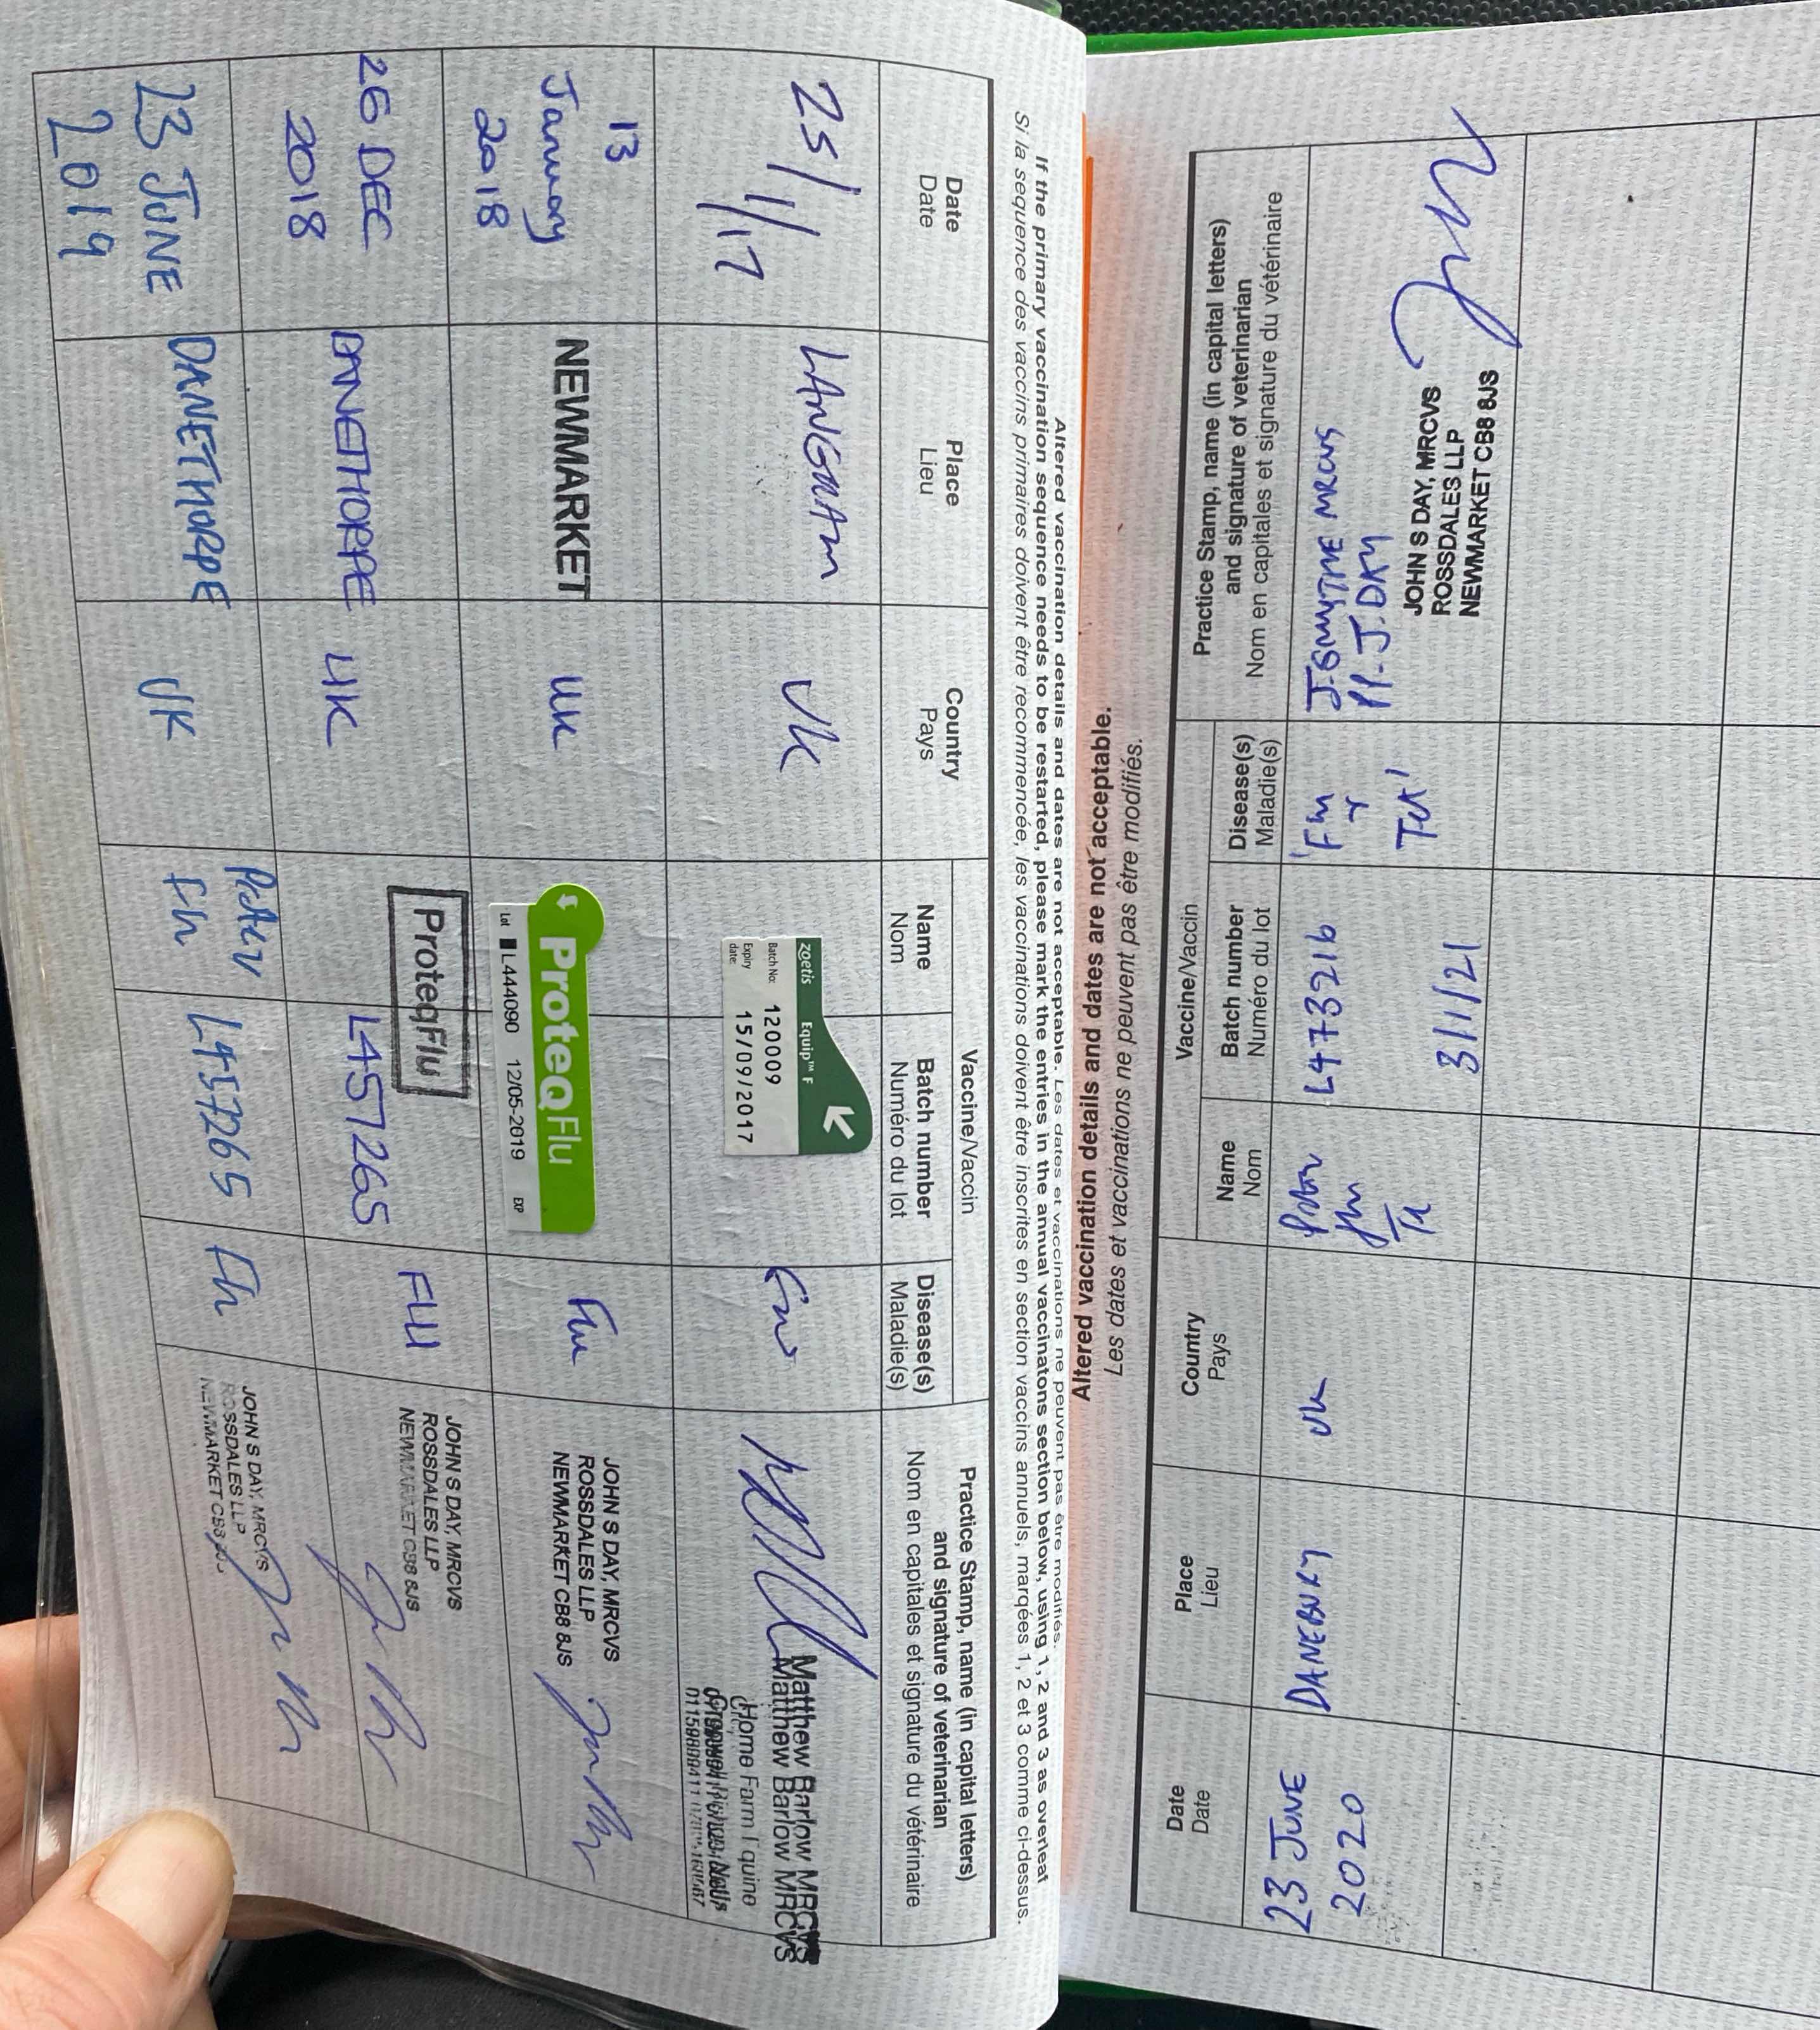 Altered vaccination details and dates are not acceptable. Les dates et vaccinations ne peuvent pas être modifiés.
If the primary vaccination sequence needs to be restarted, please mark the entries in the annual vaccinatons section below, using 1, 2 and 3 as overleaf
Si la sequence des vaccins primaires doivent être recommencée, les vaccinations doivent être inscrites en section vaccins annuels, marqées 1, 2 et 3 comme ci-dessus.
Date
Date
Place
Lieu
Country
Pays
Vaccine/Vaccin
Name
Nom
Batch number
Numéro du lot
Disease(s)
Maladie(s)
Practice Stamp, name (in capital letters)
and signature of veterinarian
Nom en capitales et signature du vétérinaire
25/1/17
LANGHAM
UK
zoetis Equip™ F
Batch No: 120009
Expiry date: 15/09/2017
Flu
Matthew Barlow MRCVS
Matthew Barlow MRCVS
Home Farm Equine
13
January
2018
NEWMARKET
UK
ProteqFlu
Lot L444090 12/05-2019 EXP
Flu
JOHN S DAY, MRCVS
ROSSDALES LLP
NEWMARKET CB8 8JS
26 DEC
2018
DANETHORPE
UK
ProteqFlu
L457265
FLU
JOHN S DAY, MRCVS
ROSSDALES LLP
NEWMARKET CB8 8JS
23 JUNE
2019
DANETHORPE
UK
Flu
L457265
Flu
JOHN S DAY, MRCVS
ROSSDALES LLP
NEWMARKET CB8 8JS
Altered vaccination details and dates are not acceptable.
Les dates et vaccinations ne peuvent pas être modifiés.
Date
Date
Place
Lieu
Country
Pays
Vaccine/Vaccin
Name
Nom
Batch number
Numéro du lot
Disease(s)
Maladie(s)
Practice Stamp, name (in capital letters)
and signature of veterinarian
Nom en capitales et signature du vétérinaire
23 JUNE
2020
DANEBURY
UK
Flu
Te
L473216
3/1/21
Flu
+
Tet
MRCVS
PP. J. DAY
JOHN S DAY, MRCVS
ROSSDALES LLP
NEWMARKET CB8 8JS